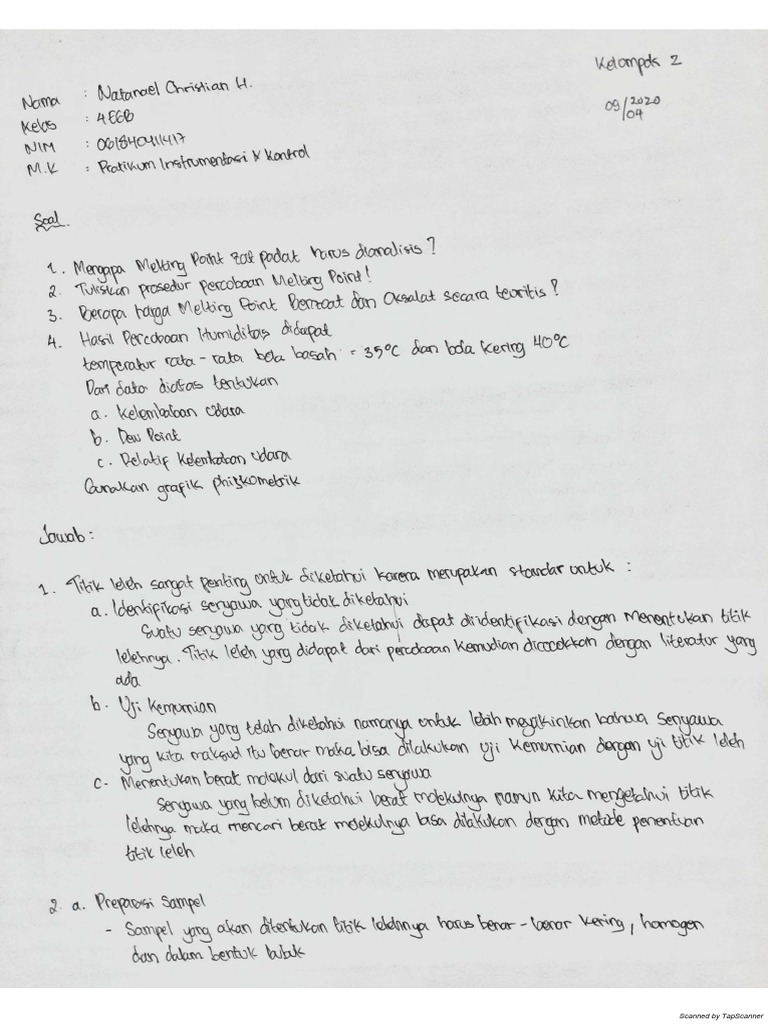 Kelompok 2
09/2020/04
Nama : Natanael Christian H.
Kelas : 4EGB
NIM : 061840411417
M.K : Pratikum Instrumentasi & Kontrol
Soal.
1. Mengapa Melting Point zat padat harus dianalisis ?
2. Tuliskan prosedur Percobaan Melting Point !
3. Berapa harga Melting Point Benzoat dan Oksalat secara teoritis ?
4. Hasil Percobaan Humiditas didapat
temperatur rata - rata bola basah = 35°C dan bola kering 40°C
Dari data diatas tentukan
a. Kelembaban Udara
b. Dew Point
c. Relatif Kelembaban Udara
Gunakan grafik phiskometrik
Jawab :
1. Titik leleh sangat penting untuk diketahui karena merupakan standar untuk :
a. Identifikasi senyawa yang tidak diketahui
Suatu senyawa yang tidak diketahui dapat diidentifikasi dengan menentukan titik
lelehnya. Titik leleh yang didapat dari percobaan kemudian dicocokkan dengan literatur yang
ada
b. Uji Kemurnian
Senyawa yang telah diketahui namanya untuk lebih meyakinkan bahwa senyawa
yang kita maksud itu benar maka bisa dilakukan uji kemurnian dengan uji titik leleh
c. Menentukan berat molekul dari suatu senyawa
Senyawa yang belum diketahui berat molekulnya namun kita mengetahui titik
lelehnya maka mencari berat molekulnya bisa dilakukan dengan metode penentuan
titik leleh
2. a. Preparasi Sampel
- Sampel yang akan ditentukan titik lelehnya harus benar - benar kering, homogen
dan dalam bentuk bubuk
Scanned by TapScanner